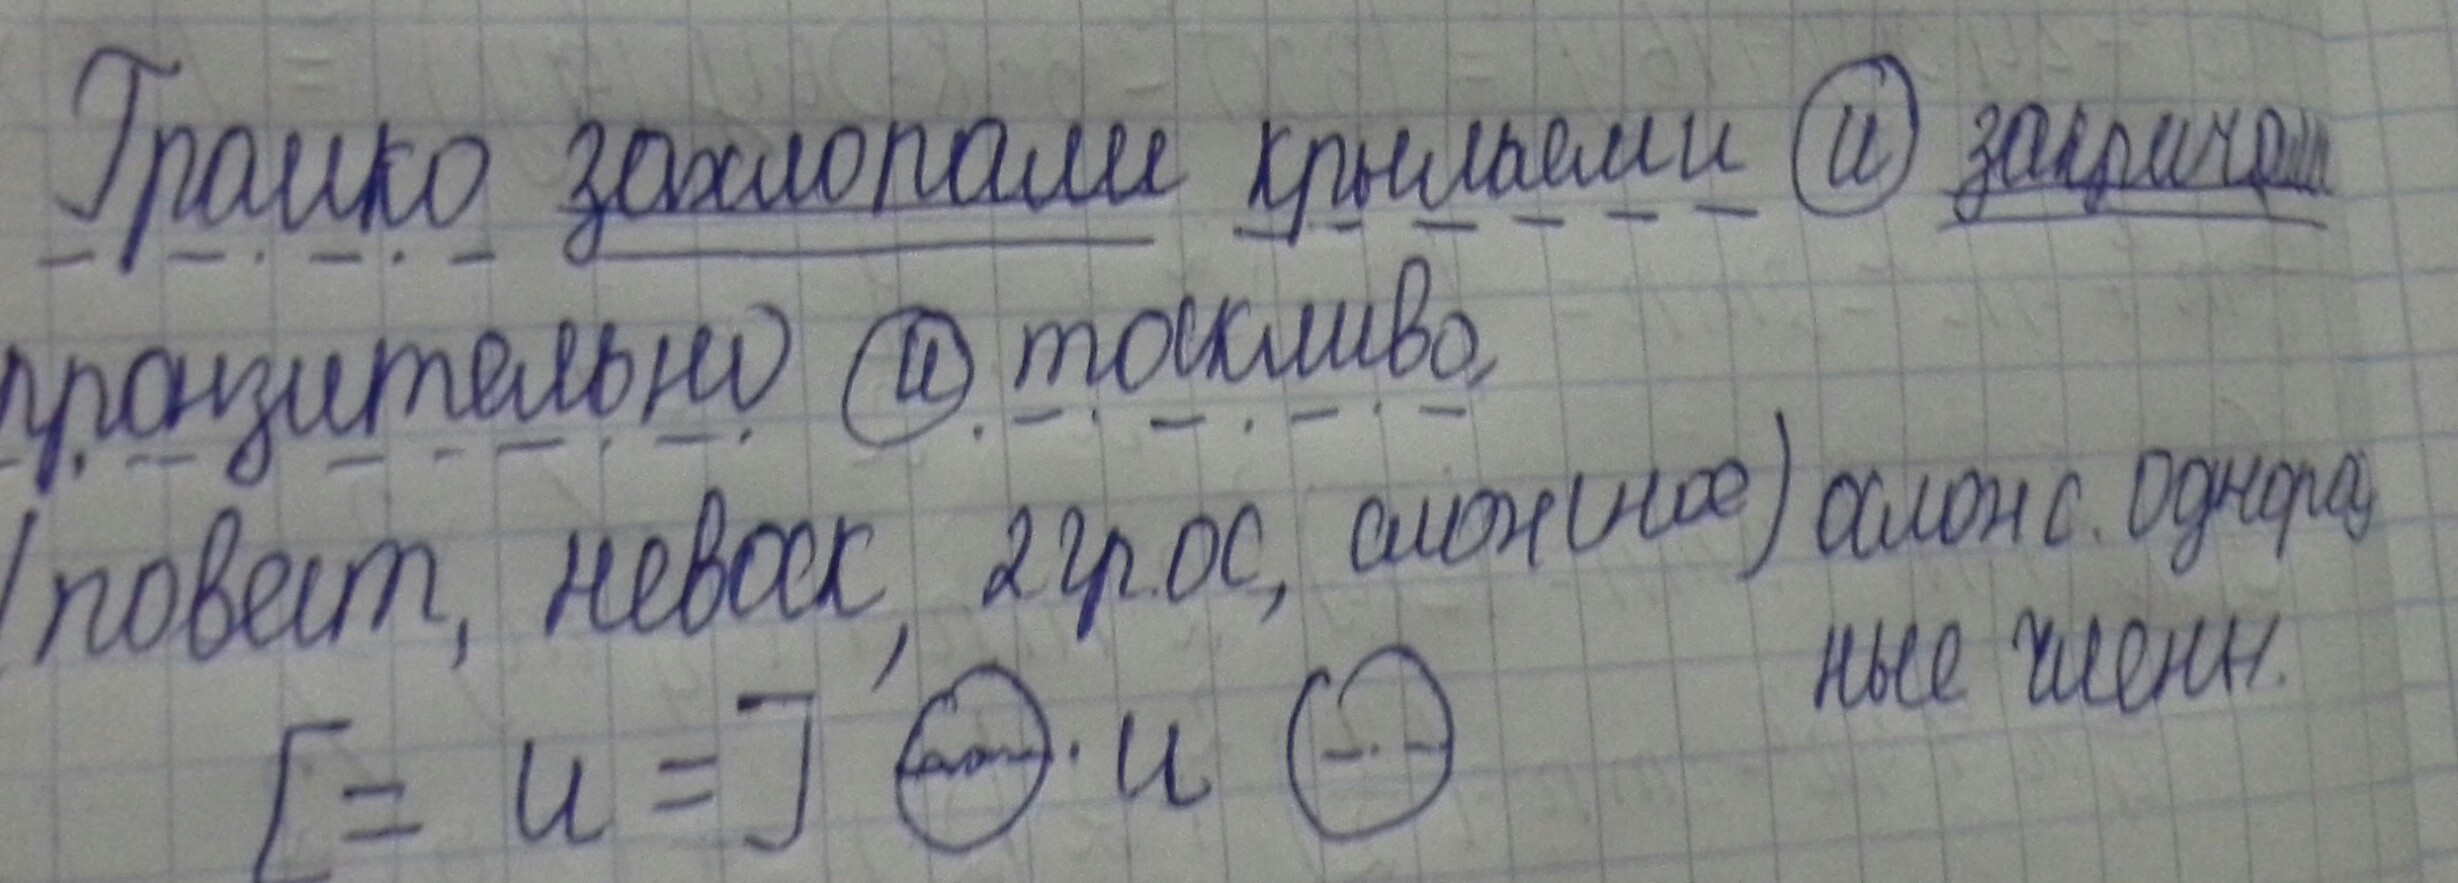 Громко захлопали крыльями и закричали
пронзительно и тоскливо.
(повест, невоск, 2 гр.ос, слож(ное) ослож с. однород
ные члены.
[= и =] и